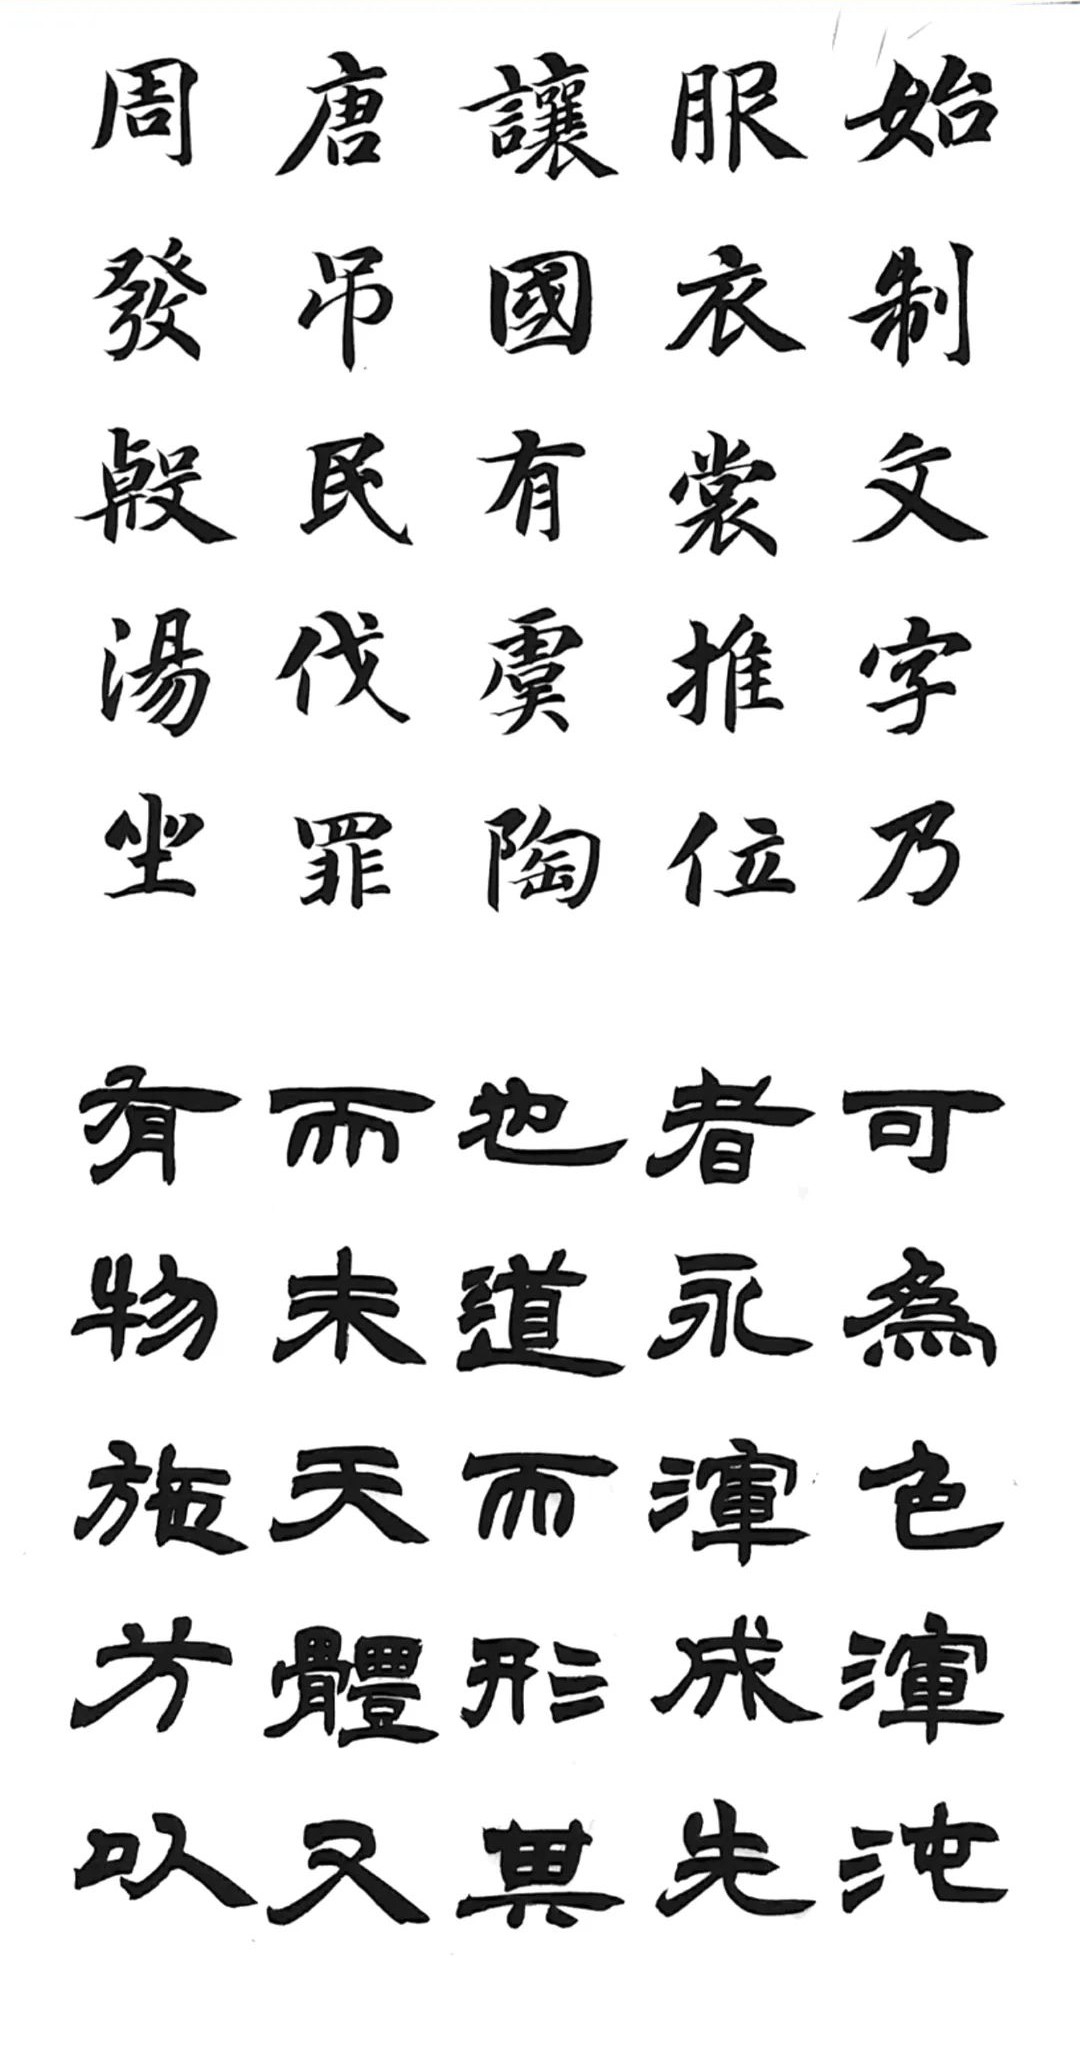 始制文字乃
服衣裳推位
讓國有虞陶
唐吊民伐罪
周發殷湯坐
可為色渾沌
者永渾成先
也道而形典
而未天體又
有物施方以